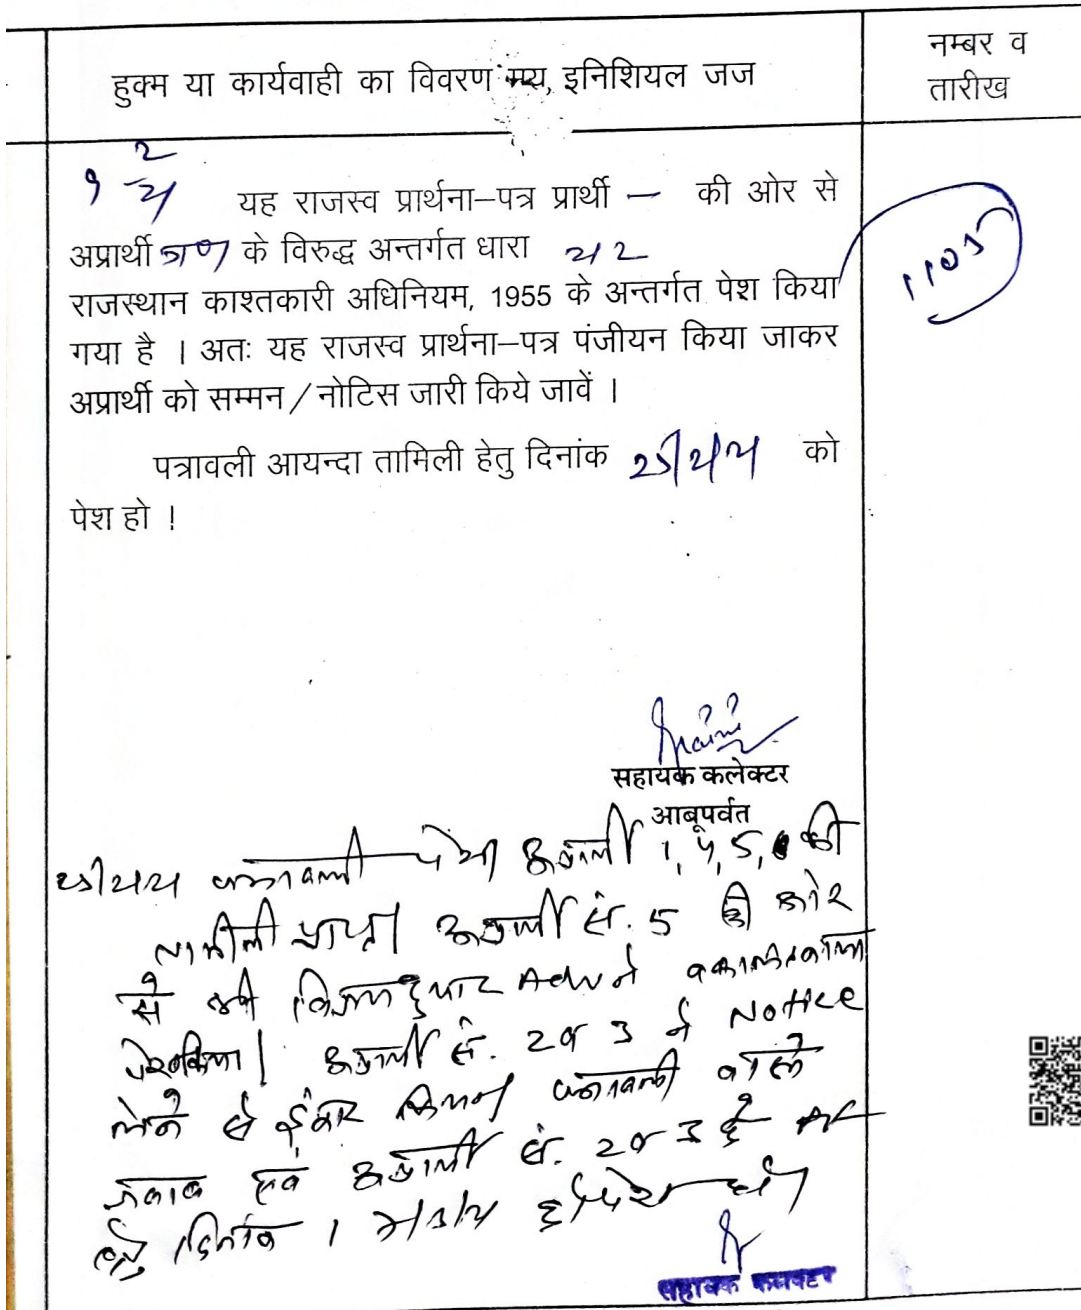 हुक्म या कार्यवाही का विवरण मय, इनिशियल जज
नम्बर व
तारीख
यह राजस्व प्रार्थना–पत्र प्रार्थी – की ओर से
अप्रार्थी गण के विरुद्ध अन्तर्गत धारा
राजस्थान काश्तकारी अधिनियम, 1955 के अन्तर्गत पेश किया
गया है । अतः यह राजस्व प्रार्थना–पत्र पंजीयन किया जाकर
अप्रार्थी को सम्मन / नोटिस जारी किये जावें ।
पत्रावली आयन्दा तामिली हेतु दिनांक को
पेश हो !
सहायक कलेक्टर
आबूपर्वत
पत्रावली पेश। अप्रार्थी 1, 4, 5, की
तामीली प्राप्त। अप्रार्थी सं. 5 की ओर
से श्री Adv ने वकालतनामा
पेश किया। अप्रार्थी सं. 2 व 3 ने Notice
लेने से इंकार किया। पत्रावली वास्ते
जवाब एवं अप्रार्थी सं. 2 व 3 के
हेतु दिनांक को पेश हो।
सहायक कलक्टर